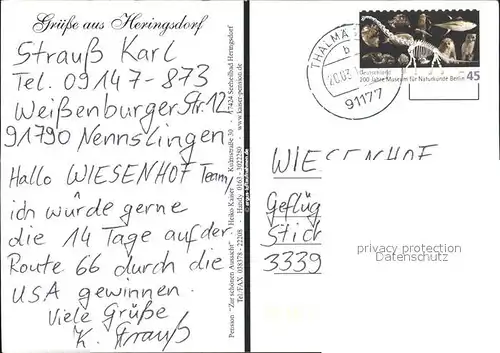 Grüße aus Heringsdorf
Strauß Karl
Tel. 09147-873
Weißenburger Str. 12
91790 Nennslingen
Hallo WIESENHOF Team,
ich würde gerne
die 14 Tage auf der
Route 66 durch die
USA gewinnen.
Viele Grüße
K. Strauß
Pension "Zur schönen Aussicht" - Heiko Kaiser - Kulmstraße 30 - 17424 Seeheilbad Heringsdorf
Tel/FAX 038378 - 22208 - Handy 0163 - 3022250 - www.kaiser-pension.de
THALMA
b
20.03.1
91177
Deutschland
200 Jahre Museum für Naturkunde Berlin
45
WIESENHOF
Geflüg
Stich
3339
privacy protection
Datenschutz